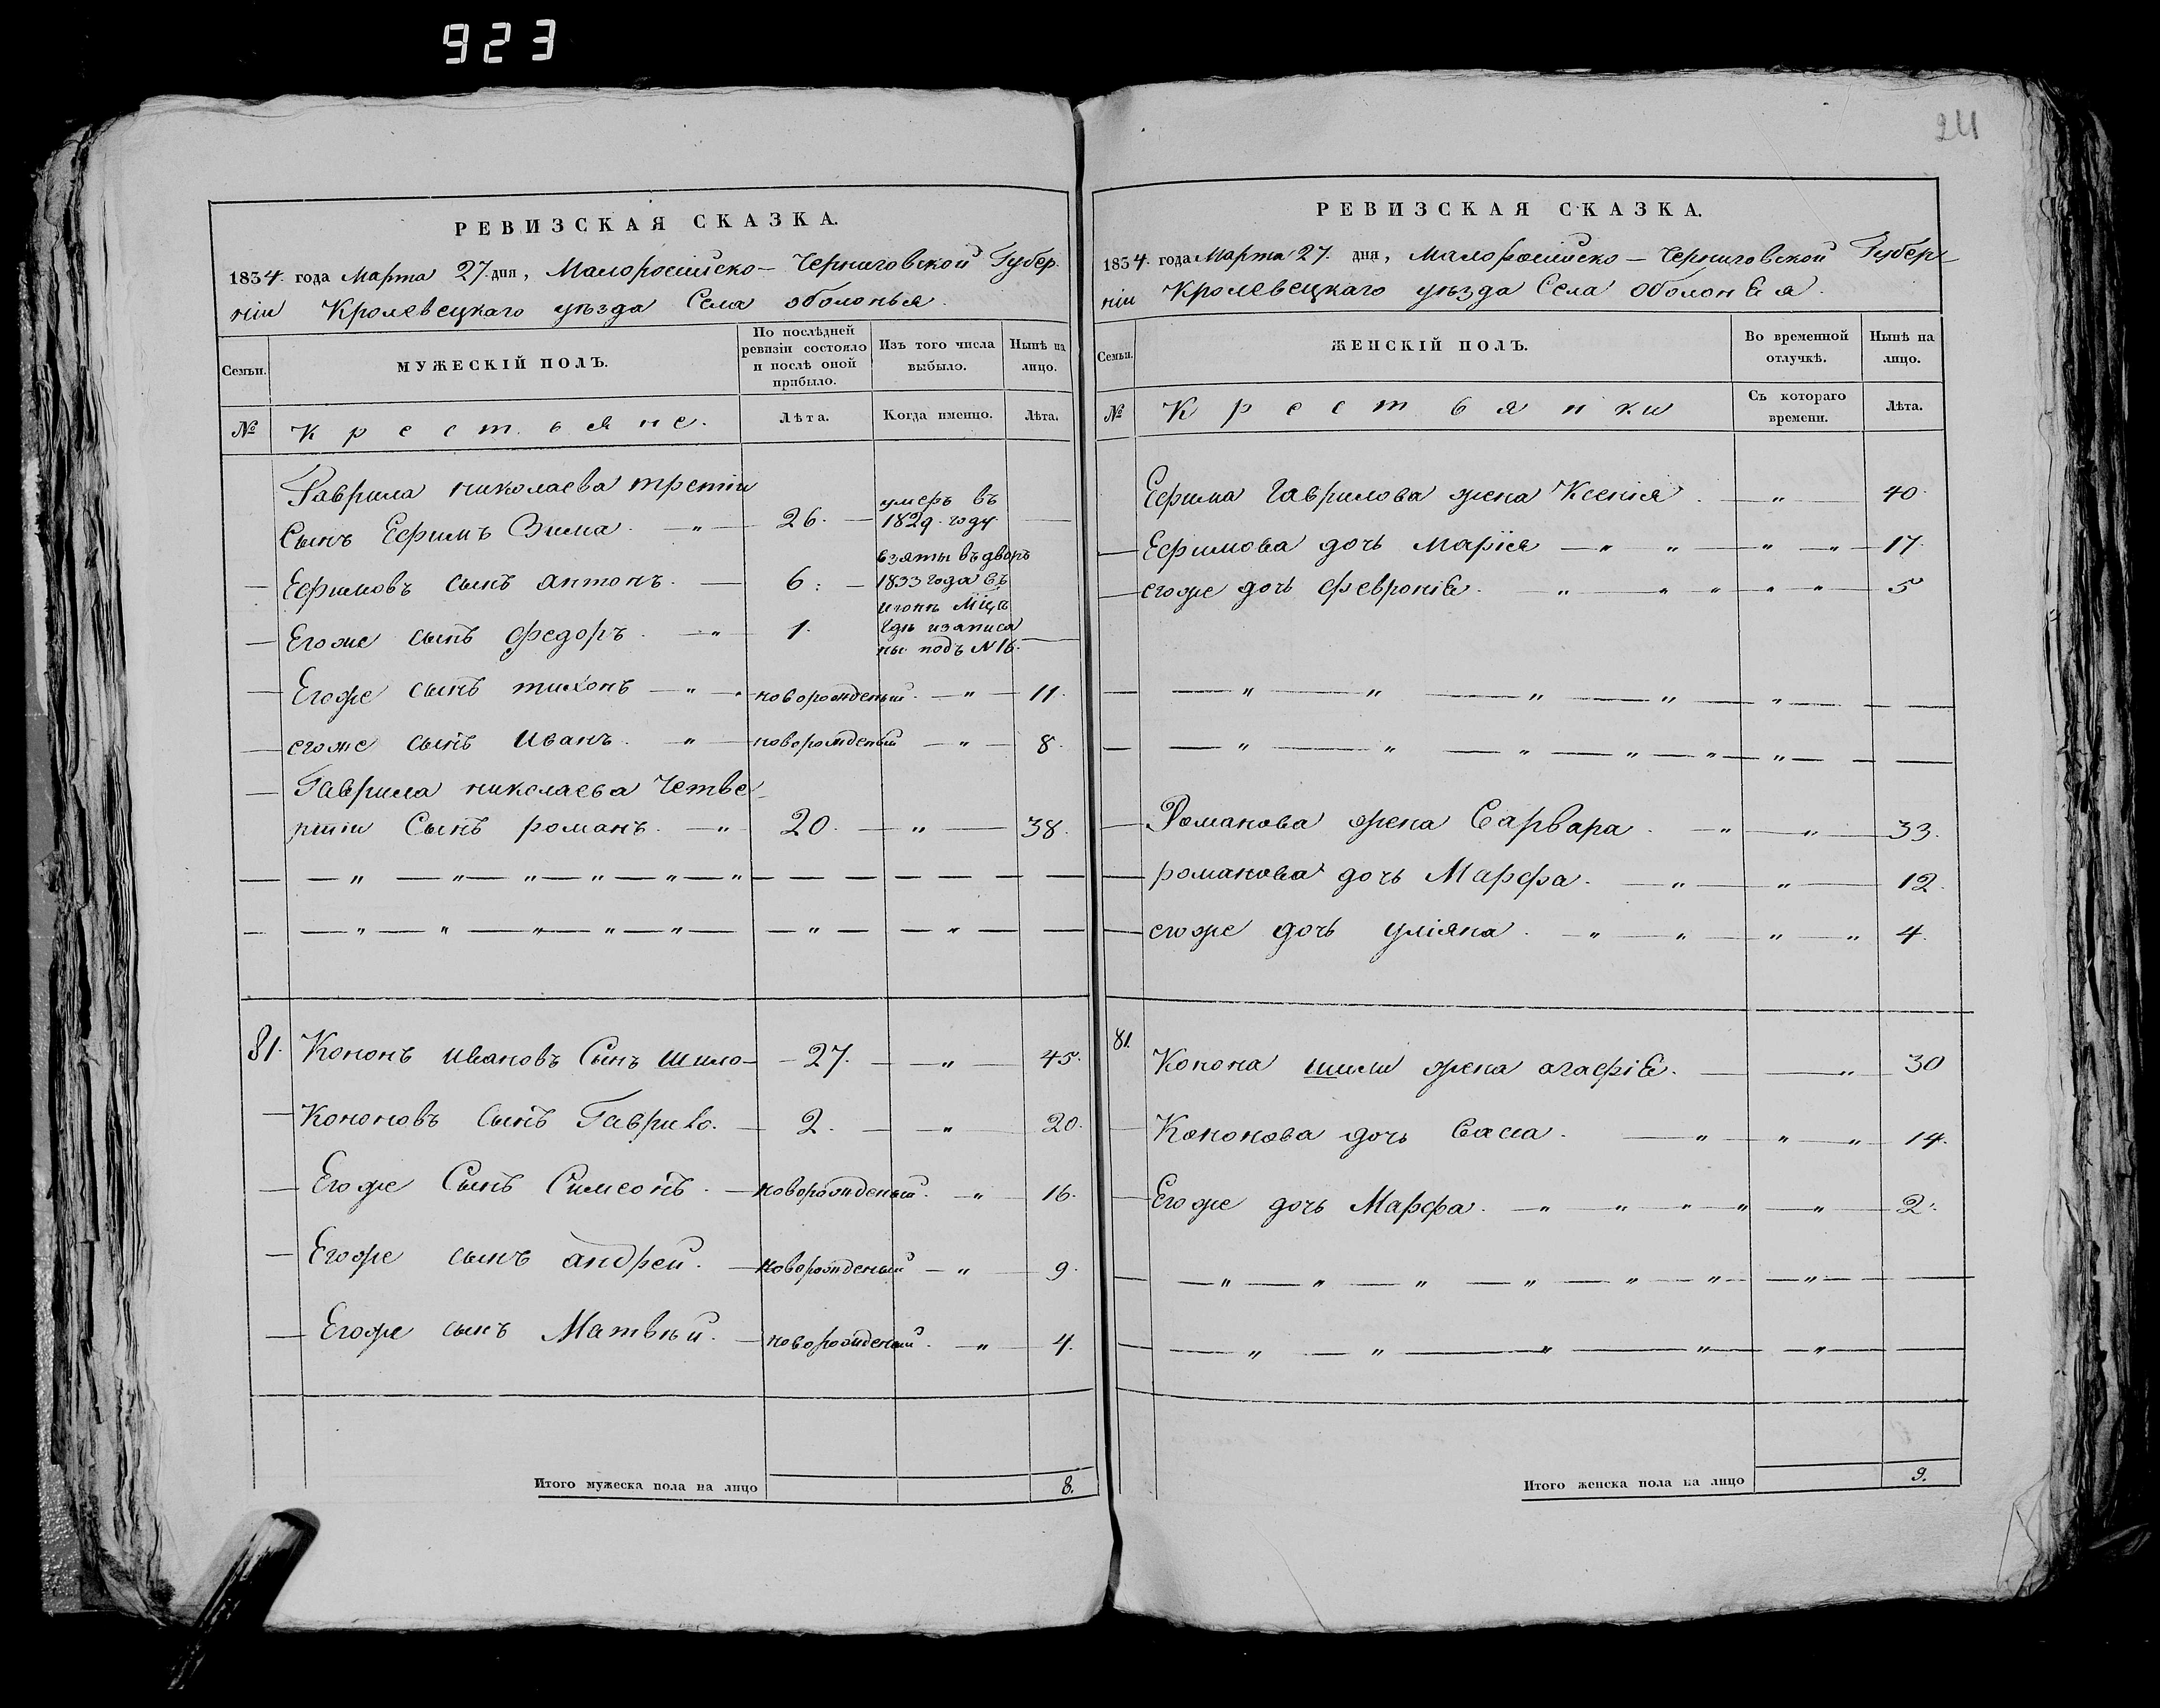 923
24
РЕВИЗСКАЯ СКАЗКА.
1834. года Марта 27. дня, Малоросийско- Черниговской Губер.
нiи Кролевецкаго уѣзда Села оболонья.
Семьи.
МУЖЕСКIЙ ПОЛЪ.
По послѣдней ревизiи состояло и послѣ оной прибыло.
Изъ того числа выбыло.
Нынѣ на лицо.
№
Крестьяне.
Лѣта.
Когда именно.
Лѣта.
Гаврила николаева третiи
Сынъ Ефимъ Зима. — " — 26. — умеръ въ 1829. году. —
— Ефимовъ сынъ антонъ. — 6: — взяты въ дворъ
1833 года въ
июнѣ мiцѣ
— Егоже сынъ федоръ. — " — 1. гдѣ изаписа
ны подъ №16. —
— Егоже сынъ тихонъ — " — новорожденый. — " — 11.
— егоже сынъ иванъ. — " — новорожденый — " — 8.
— Гаврила николаева Четве-
ртiи Сынъ романъ. — " 20. — " — 38.
— — " — " — " — " — " — " — — — — — — —
— — " — " — " — " — " — — " — — " — —
81. Кононъ ивановъ Сынъ шило- -27. — " — 45.
— Кононовъ сынъ Гаврило. — 2. — " — 20.
— Егоже Сынъ Симеонъ. — новорожденый. — " — 16.
— Егоже сынъ андрей. — новорожденый — " — 9.
— Егоже сынъ Матвѣй. — новорожденый. — " — 4.
Итого мужеска пола на лицо 8.
РЕВИЗСКАЯ СКАЗКА.
1834. года Марта 27. дня, Малоросийско — Черниговской Губер-
нiи Кролевецкаго уѣзда Села Оболонья.
Семьи.
ЖЕНСКIЙ ПОЛЪ.
Во временной отлучкѣ.
Нынѣ на лицо.
№
Крестьянки
Съ котораго времени.
Лѣта.
Ефима Гаврилова жена Ксенiя. — " — 40.
— Ефимова дочь Марiя — " " — " — " — 17.
— егоже дочь февронiя. — " — " " — " — " — 5
— — " — " — " — " — " — — —
— — " — " — " — " — " — " — — —
— Романова жена Варвара. — " — " — 33.
— романова дочь Марфа. — " — " — 12.
— егоже дочь улiяна. — " — " — " — " 4.
81. Конона шили жена агафiя. — — " — 30
— Кононова дочь Васса. — " — " — " — 14.
— Егоже дочь Марфа. — " — " — " — " — " — 2.
— — " — " — " — " — " — " — — " — —
— — " — " — " — " — — " — —
Итого женска пола на лицо 9.